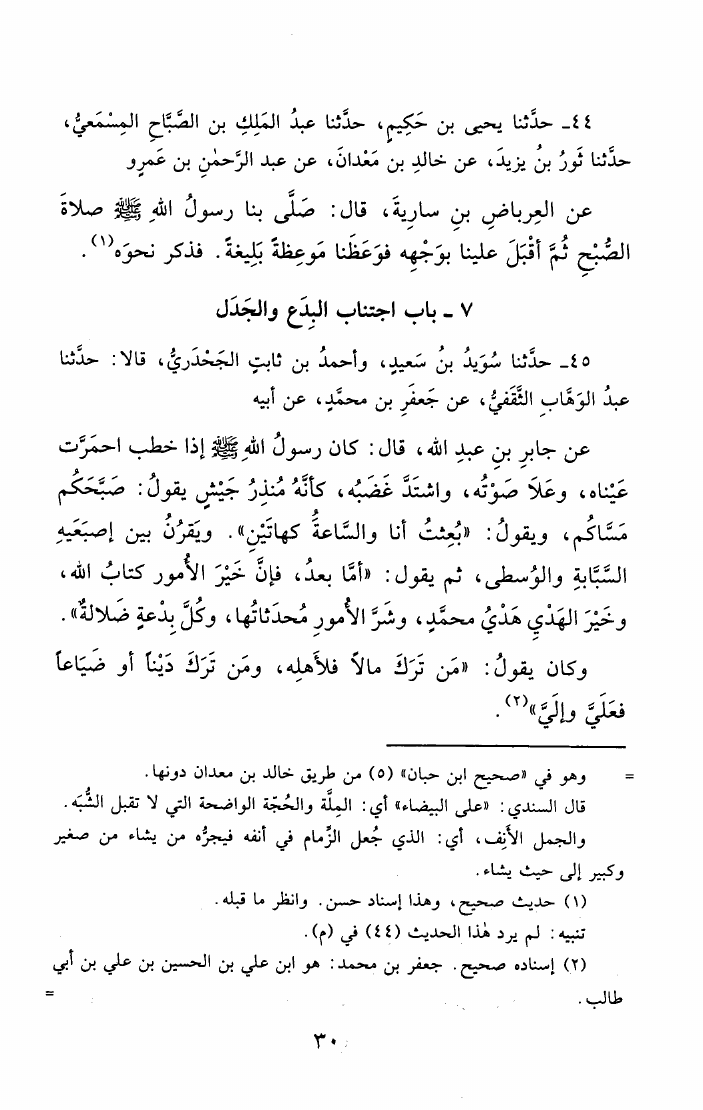 ٤٤ـ حدَّثنا يحيى بن حَكِيمٍ، حدَّثنا عبدُ المَلِكِ بن الصَّبَّاحِ المِسْمَعيُّ،
حدَّثنا ثَورُ بنُ يزيدَ، عن خالدِ بن مَعْدانَ، عن عبد الرَّحمٰنِ بن عَمرٍو
عن العِرباضِ بنِ ساريةَ، قال: صَلَّى بنا رسولُ اللهِ ﷺ صلاةَ
الصُّبْحِ ثُمَّ أقْبَلَ علينا بوَجْهِه فوَعَظَنا مَوعِظةً بَلِيغةً. فذكر نحوَه(١).
٧ ـ باب اجتناب البِدَع والجَدَل
٤٥ـ حدَّثنا سُوَيدُ بنُ سَعيدٍ، وأحمدُ بن ثابتٍ الجَحْدَريُّ، قالا: حدَّثنا
عبدُ الوَهَّابِ الثَّقَفيُّ، عن جَعفَرِ بن محمَّدٍ، عن أبيه
عن جابرِ بنِ عبدِ الله، قال: كان رسولُ اللهِ ﷺ إذا خطب احمَرَّت
عَيْناه، وعَلَا صَوْتُه، واشتَدَّ غَضَبُه، كأنَّهُ مُنذِرُ جَيْشٍ يقولُ: صَبَّحَكُم
مَسَّاكُم، ويقولُ: «بُعِثتُ أنا والسَّاعةُ كهاتَيْنِ». ويَقرُنُ بين إصبَعَيهِ
السَّبَّابةِ والوُسطى، ثم يقول: «أمَّا بعدُ، فإنَّ خَيْرَ الأمور كتابُ الله،
وخَيْرَ الهَدْيِ هَدْيُ محمَّدٍ، وشَرَّ الأُمورِ مُحدَثاتُها، وكُلَّ بِدْعةٍ ضَلالةٌ».
وكان يقولُ: «مَن تَرَكَ مالاً فلأهلِه، ومَن تَرَكَ دَيْناً أو ضَيَاعاً
فعَلَيَّ وإلَيَّ»(٢).
= وهو في «صحيح ابن حبان» (٥) من طريق خالد بن معدان دونها.
قال السندي: «على البيضاء» أي: المِلَّة والحُجّة الواضحة التي لا تقبل الشُّبَه.
والجمل الأَنِف، أي: الذي جُعل الزِّمام في أنفه فيجرُّه من يشاء من صغير
وكبير إلى حيث يشاء.
(١) حديث صحيح، وهذا إسناد حسن. وانظر ما قبله.
تنبيه: لم يرد هٰذا الحديث (٤٤) في (م).
(٢) إسناده صحيح. جعفر بن محمد: هو ابن علي بن الحسين بن علي بن أبي
طالب. =
٣٠